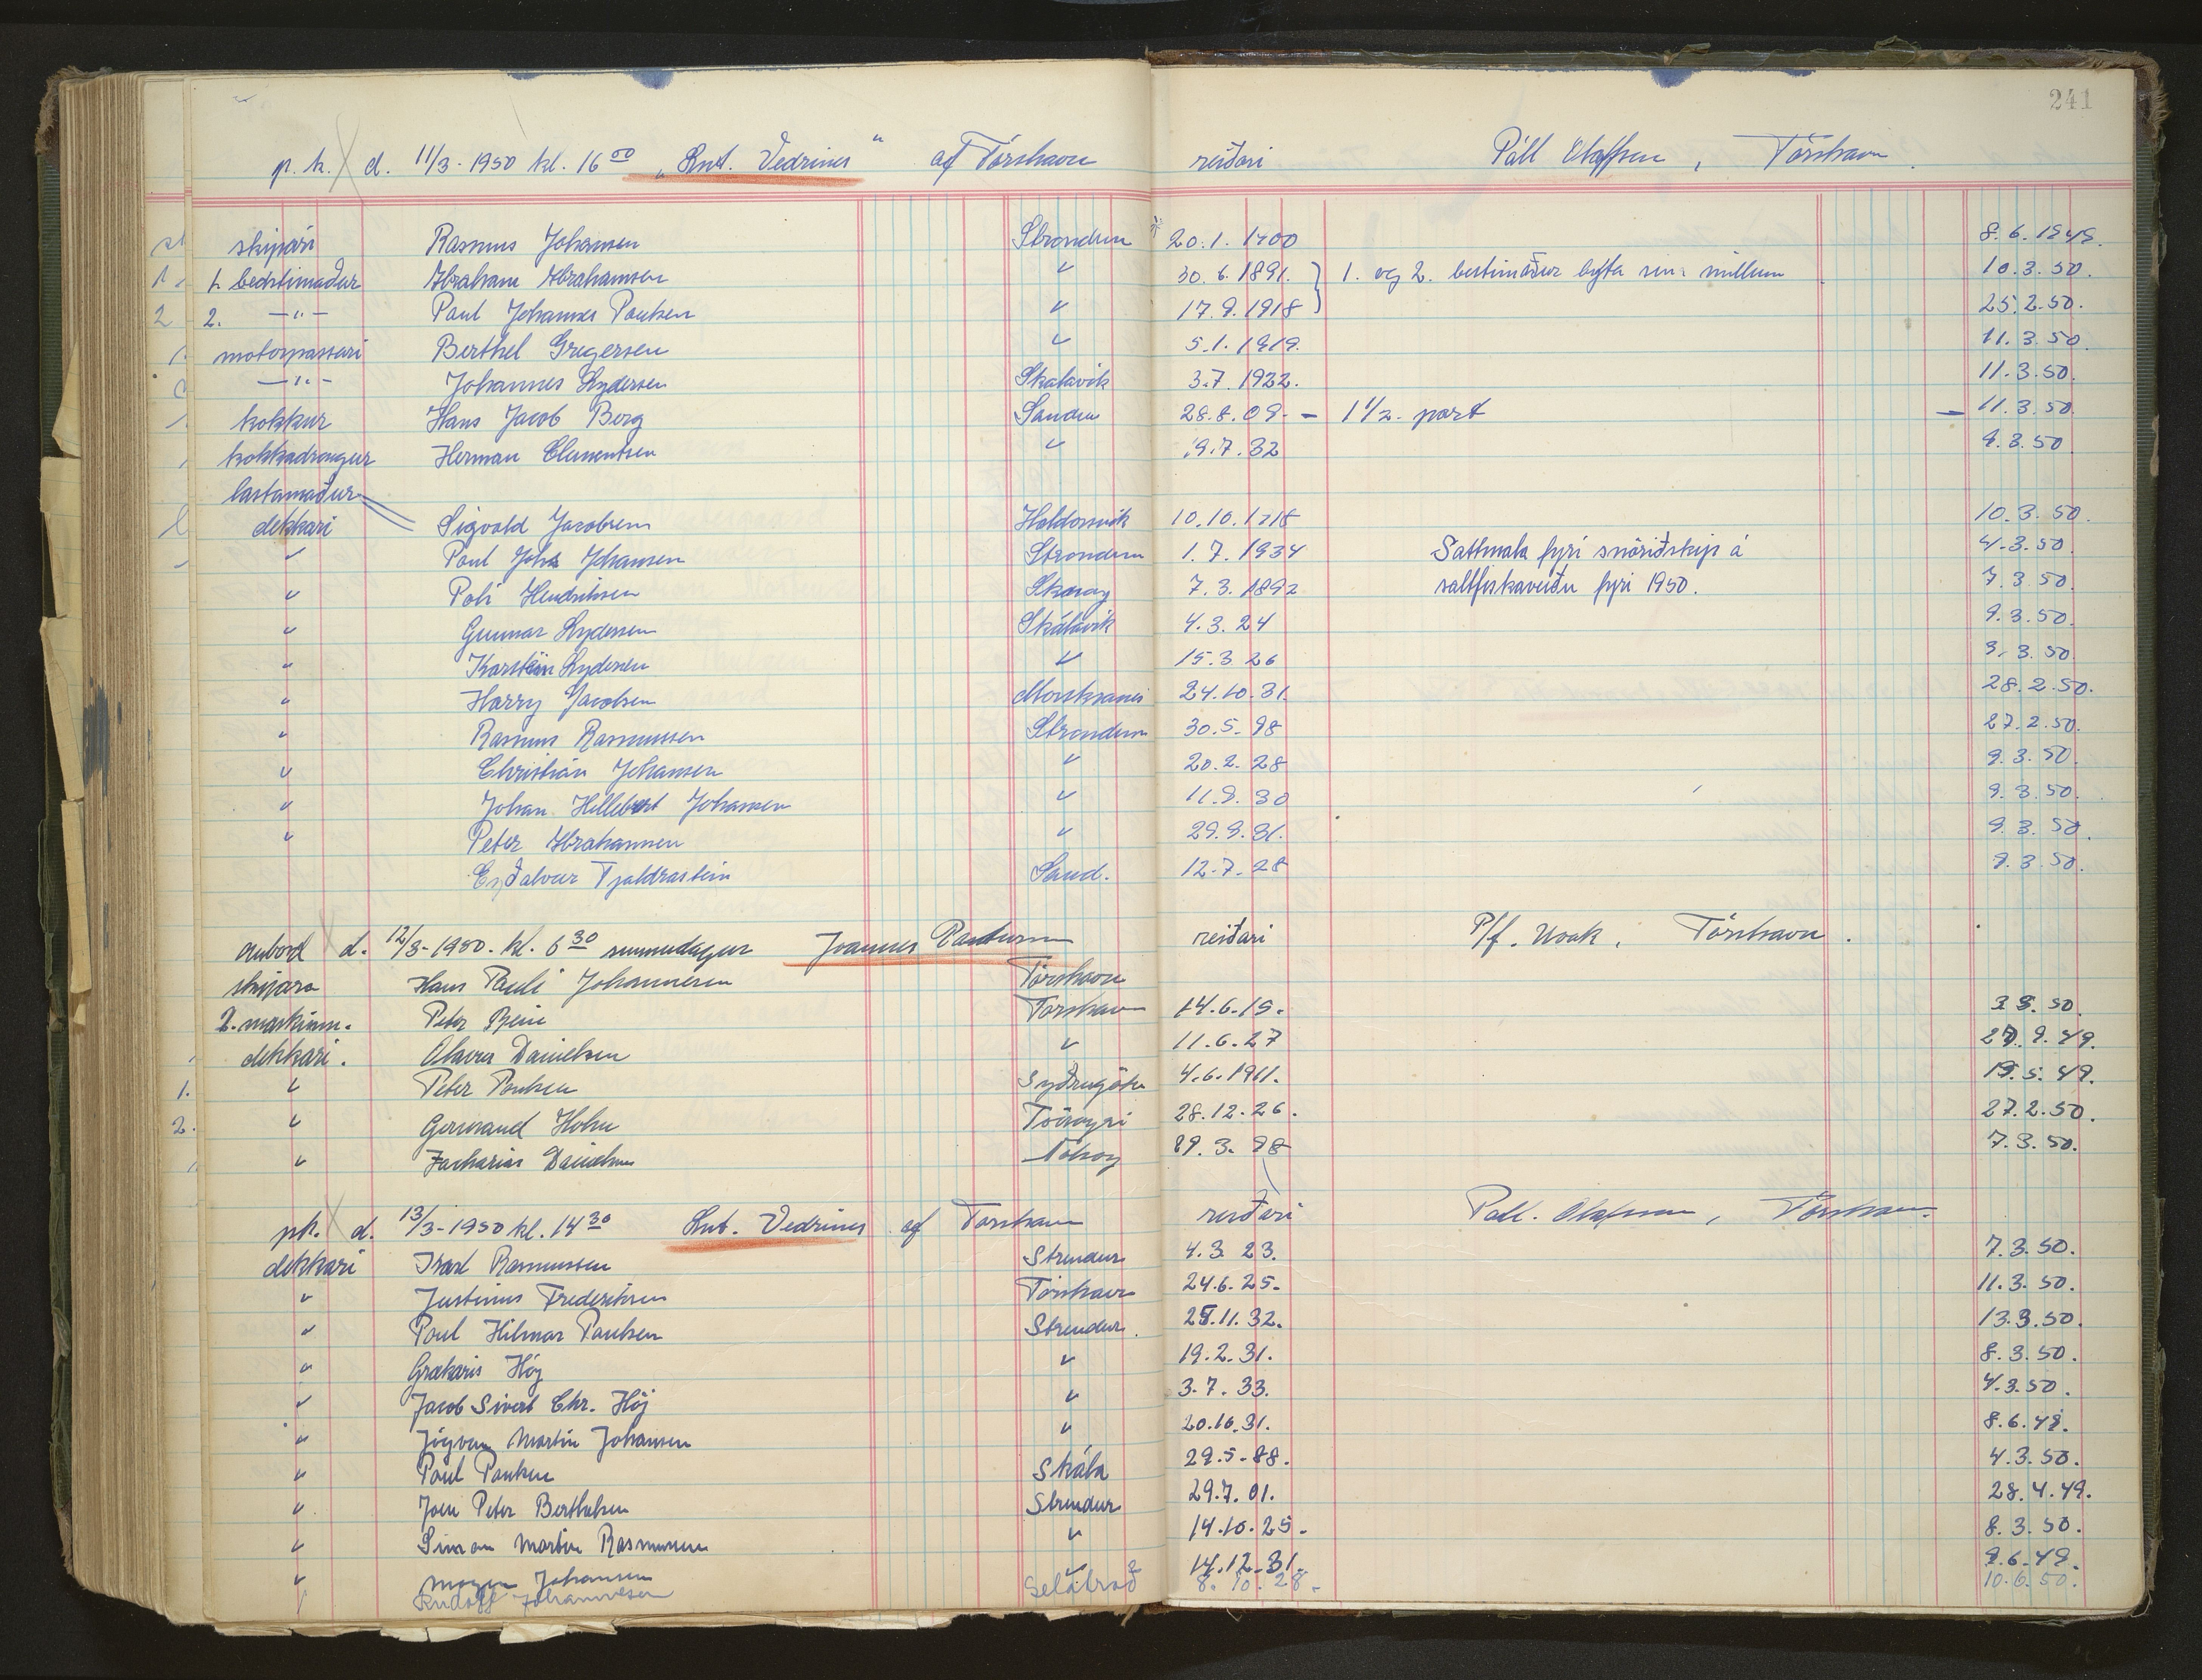 241
p. k. d. 11/3-1950 kl. 16 00 „Snt. Vedrines“ af Tórshavn reiðari Páll Olafsen, Tórshavn.
skipari Rasmus Johansen Strondum 20.1.1900 8.6.1949.
1. bestimaður Abraham Abrahamsen " 30.6.1891. } 1. og 2. bestimaður býta sín millum 10.3.50.
2. —"— Poul Johannes Poulsen " 17.9.1918 } 25.2.50.
motorpassari Berthel Gregersen " 5.1.1919. 11.3.50.
—"— Johannes Lydersen Skalavik 3.7.1922. 11.3.50.
kokkur Hans Jacob Berg Sandur 28.8.09 - 1 1/2 part - 11.3.50
kokkadrongur Herman Clementsen " 9.7.32 9.3.50
lastamaður
dekkari Sigvald Jacobsen Haldorsvik 10.10.1918 10.3.50.
" Poul Johs Johansen Strondum 1.7.1934 Sáttmála fyri snøriðskip á 4.3.50.
" Poli Hendriksen Skorag 7.3.1892 saltfiskaveiðu fyri 1950. 7.3.50.
" Gunnar Lydersen Skálavik 4.3.24 9.3.50.
" Karstin Lydersen " 15.3.26 3.3.50.
" Harry Jacobsen Morskranes 24.10.31. 28.2.50.
" Rasmus Rasmussen Strondum 30.5.98 27.2.50.
" Christian Johansen " 20.2.28 9.3.50.
" Johan Hellebert Johansen " 11.9.30 9.3.50.
" Peter Abrahamsen " 29.9.31. 9.3.50.
Eyðalvur Tjaldrastein Sand. 12.7.28 9.3.50.
umbord d. 12/3-1950. kl. 6 30 sunnudagur Joannes Patursson reiðari P/f. Uvak, Tórshavn.
skipara Hans Pauli Johannesen Tórshavn
2. maskinm. Peter Torshavn 14.6.15. 3.3.50.
dekkari. Olavur Danielsen " 11.6.27 27.9.49.
1. " Peter Poulsen Syðrugøtu 4.6.1911. 19.5.49.
2. " Germand Holm Tvøroyri 28.12.26. 27.2.50.
" Zacharias Danielsen Nólsoy 29.3.98 7.3.50.
pk. d. 13/3-1950 kl. 14 30 Snt. Vedrines af Torshavn reiðari Páll. Olafsson, Tórshavn.
dekkari Isak Rasmussen Strendur 4.3.23. 7.3.50.
" Justinus Frederiksen Tórshavn 24.6.25. 11.3.50.
" Poul Hilmar Poulsen Strendur. 25.11.32. 13.3.50.
" Grækaris Høj " 19.2.31. 8.3.50.
" Jacob Sivert Chr. Høj " 3.7.33. 4.3.50.
" Jógvan Martin Johansen " 20.10.31. 8.6.49.
" Poul Poulsen Skála 29.5.88. 4.3.50.
" Joen Peter Berthelsen Strendur 29.7.01. 28.4.49.
" Simon Martin Rasmussen " 14.10.25. 8.3.50.
" Mogen Johansen " 14.12.31. 9.6.49.
Rudolf Johannesen Selatrað 8.10.28. 10.6.50.